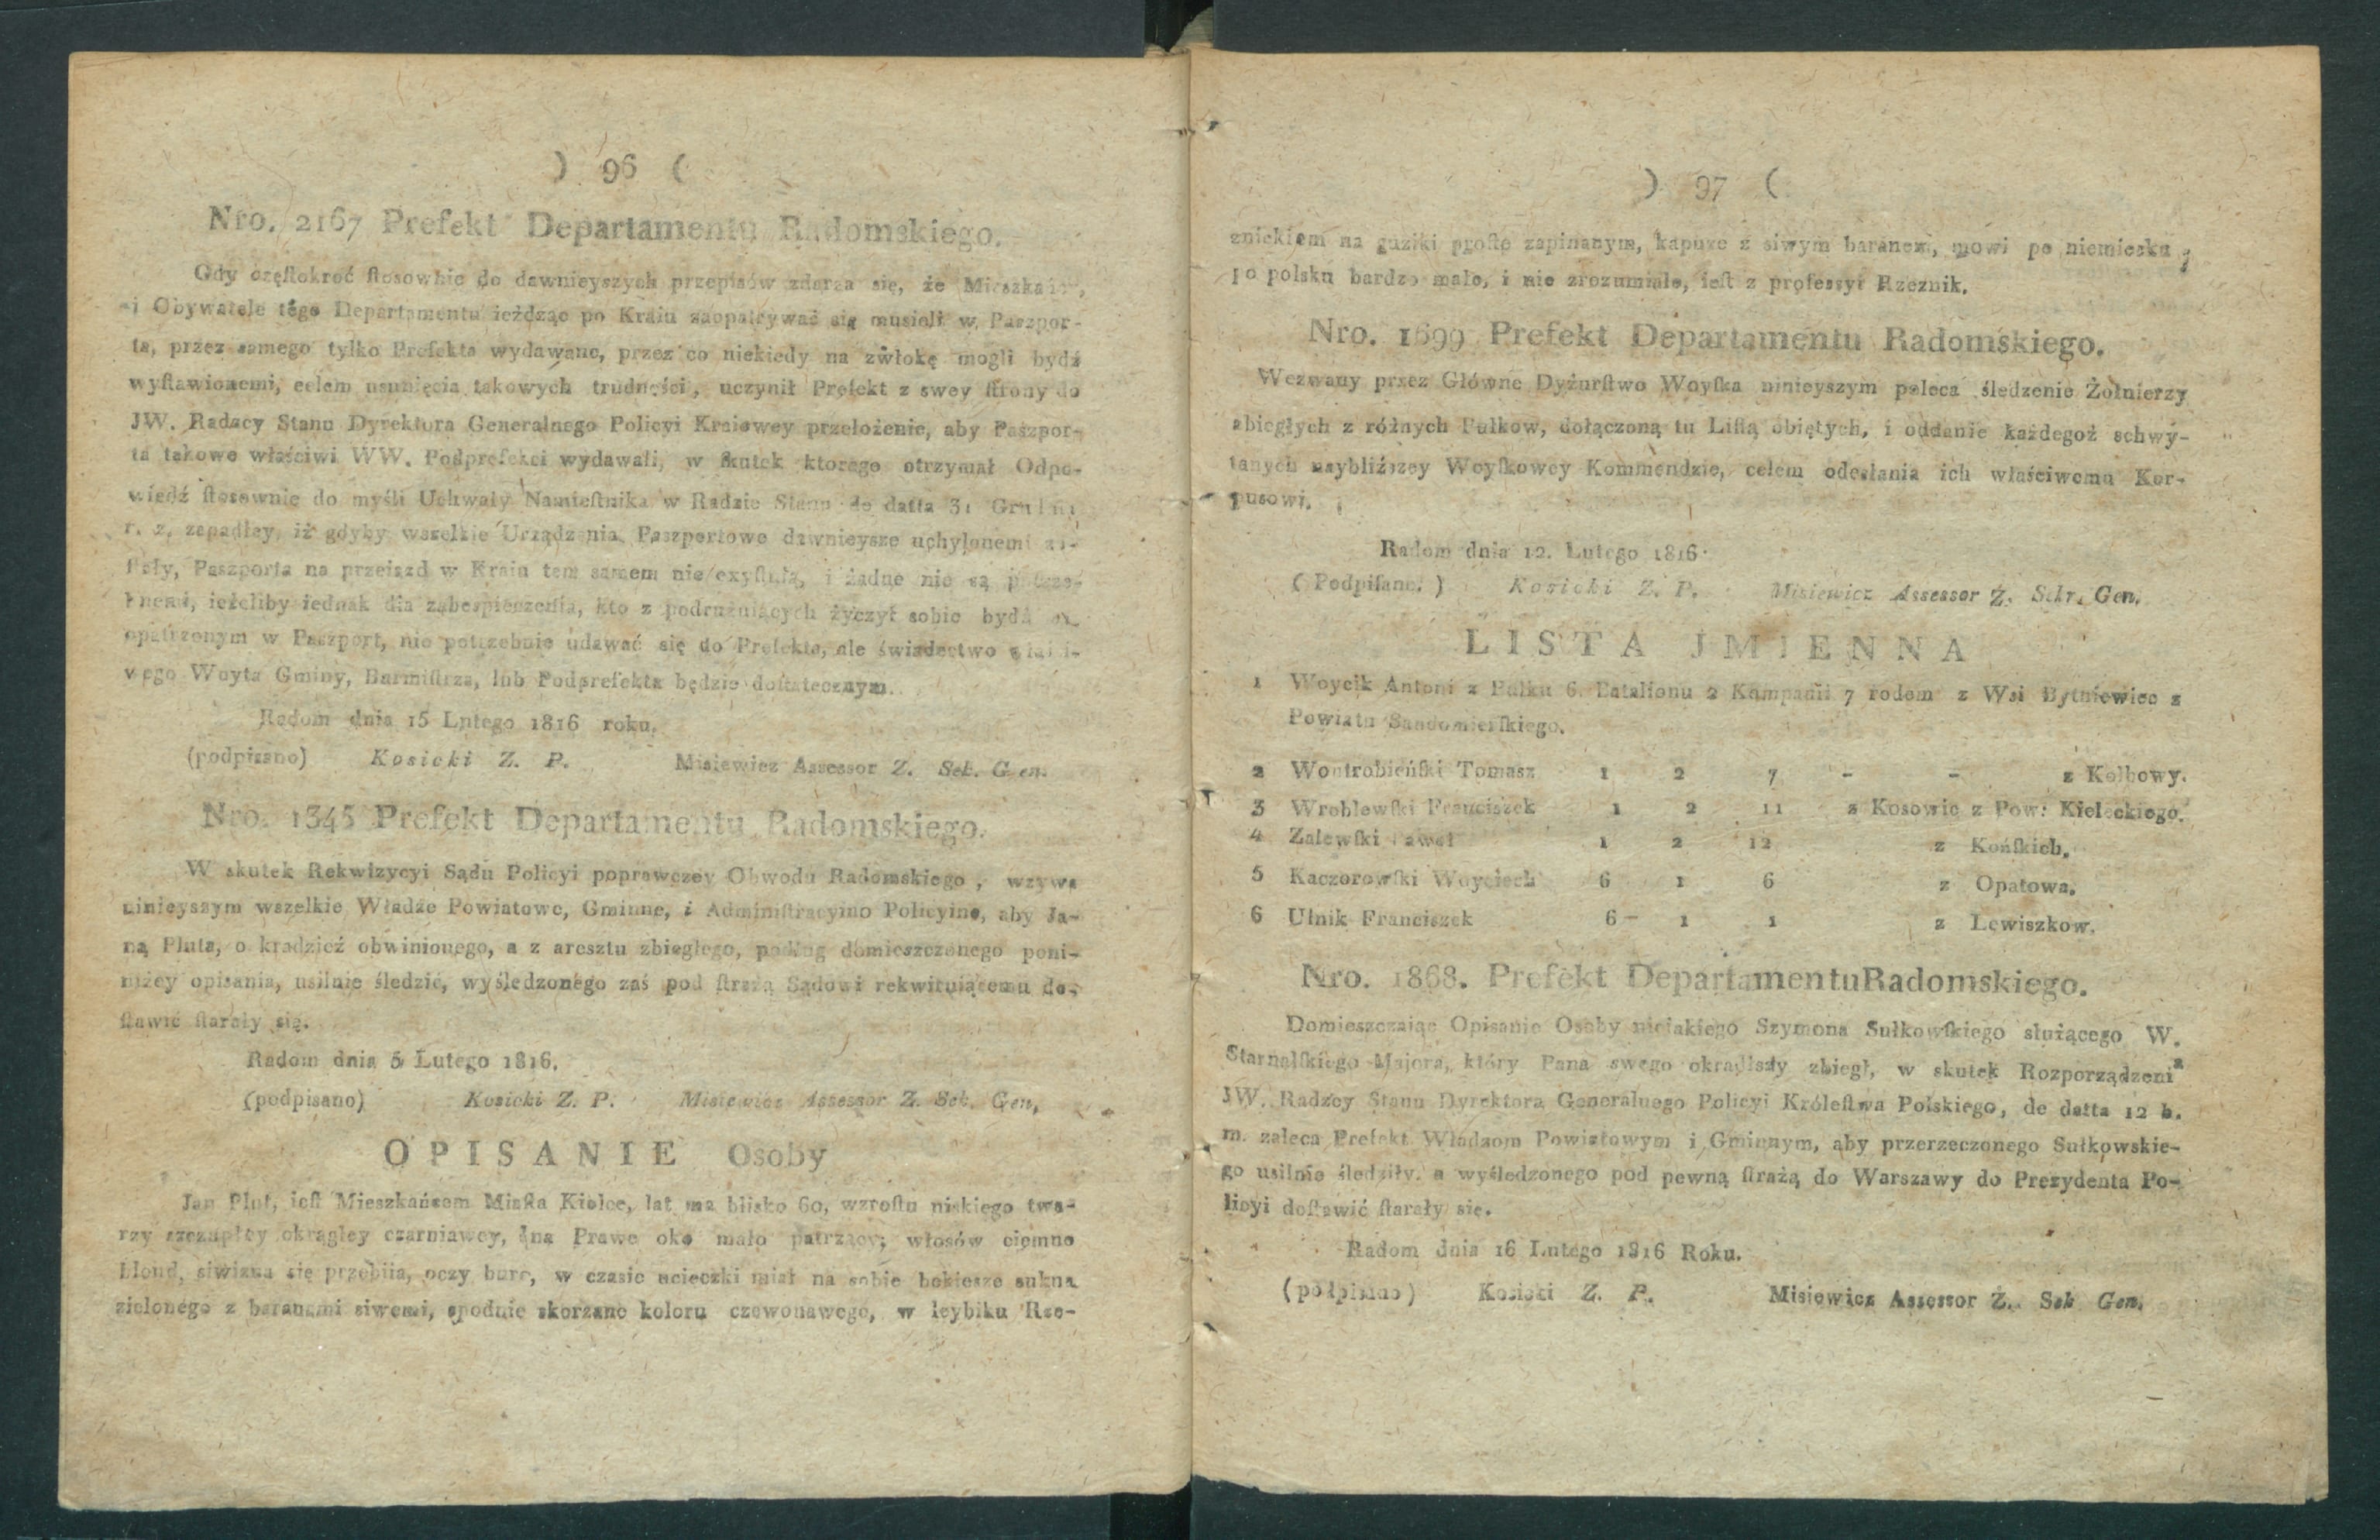 ) 96 (
Nro. 2167 Prefekt Departamentu Radomskiego.
Gdy częſtokroć ſtosownie do dawnieyszych przepisów zdarza się, że
i Obywatele tégo Departamentu ieżdżąc po Kraiu zaopatrywać się musieli w Paszpor-
ta, przez samego tylko Prefekta wydawane, przez co niekiedy na zwłokę mogli bydź
wyſtawionemi, celem usunięcia takowych trudności, uczynił Prefekt z swey ſtrony do
JW. Radzcy Stanu Dyrektora Generalnego Policyi Kraiowey przełożenie, aby Paszpor-
ta takowe właściwi WW. Podprefekci wydawali, w ſkutek ktorego otrzymał Odpo-
wiedź ſtosownie do myśli Uchwały Namieſtnika w Radzie Stanu de datta 31 Grudnia
r. z. zapadłey, iż gdyby wszelkie Urządzenia Paszportowe dawnieysze uchylonemi zo-
ſtały, Paszporta na przeiazd w Kraiu tem samem nie exyſtuią, i żadne nie są potrze-
bnemi, ieżeliby iednak dla zabespieczenia, kto z podrużuiących życzył sobie bydź
opatrzonym w Paszport, nie potrzebuie udawać się do Prefekta, ale świadectwo właści-
wego Woyta Gminy, Burmiſtrza, lub Podprefekta będzie doſtatecznym.
Radom dnia 15 Lutego 1816 roku.
(podpisano) Kosicki Z. P. Misiewicz Assessor Z. Sek. Gen.
Nro. 1345 Prefekt Departamentu Radomskiego.
W skutek Rekwizycyi Sądu Policyi poprawczey Obwodu Radomskiego, wzywa
ninieyszym wszelkie Władze Powiatowe, Gminne, i Adminiſtracyino Policyine, aby Ja-
na Pluta, o kradzież obwinionego, a z aresztu zbiegłego, podług domieszczonego poni-
niżey opisania, usilnie śledzić, wyśledzonego zaś pod ſtrażą Sądowi rekwiruiącemu do-
ſtawić ſtarały się.
Radom dnia 5 Lutego 1816.
(podpisano) Kosicki Z. P. Misiewicz Assessor Z. Sek. Gen,
OPISANIE Osoby
Jan Plut, ieſt Mieszkańcem Miaſta Kielce, lat ma blisko 60, wzroſtu niskiego twa-
rzy szczupłey okrągłey czarniawey, na Prawe oko mało patrzący; włosów ciemno
blond, siwizna się przebiia, oczy bure, w czasie ucieczki miał na sobie bekiesze sukna
zielonego z baranami siwemi, spodnie skorzane koloru czewonawego, w leybiku Rze-
) 97 (
znickiem na guziki proſte zapinanym, kapuze z siwym baranem, mowi po niemiecku ;
po polsku bardzo mało, i nie zrozumiale, ieſt z professyi Rzeznik.
Nro. 1699 Prefekt Departamentu Radomskiego.
Wezwany przez Główne Dyżurſtwo Woyſka ninieyszym poleca śledzenie Żołnierzy
zbiegłych z różnych Pułkow, dołączoną tu Liſtą obiętych, i oddanie każdegoż schwy-
tanych naybliższey Woyſkowey Kommendzie, celem odesłania ich właściwemu Kor-
pusowi.
Radom dnia 12. Lutego 1816
( Podpiſano. ) Kosicki Z. P. Misiewicz Assessor Z. Sekr. Gen.
LISTA JMIENNA
1 Woycik Antoni z Pułku 6. Batalionu 2 Kampanii 7 rodem z Wsi Bytniewiec z
Powiatu Sandomierſkiego.
2 Wontrobieńſki Tomasz 1 2 7 - - z Kolbowy.
3 Wroblewſki Franciszek 1 2 11 z Kosowic z Pow: Kieleckiego.
4 Zalewſki Paweł 1 2 12 z Końſkich.
5 Kaczorowſki Woyciech 6 1 6 z Opatowa.
6 Ulnik Franciszek 6 - 1 1 z Lewiszkow.
Nro. 1868. Prefekt DepartamentuRadomskiego.
Domieszczaiąc Opisanie Osoby nieiakiego Szymona Sułkowſkiego służącego W.
Starnalſkiego Majora, który Pana swego okradłszy zbiegł, w skutek Rozporządzenia
JW. Radzcy Stanu Dyrektora Generalnego Policyi Króleſtwa Polskiego, de datta 12 b.
m. zaleca Prefekt Władzom Powiatowym i Gminnym, aby przerzeczonego Sułkowskie-
go usilnie śledziły, a wyśledzonego pod pewną ſtrażą do Warszawy do Prezydenta Po-
licyi doſtawić ſtarały się.
Radom dnia 16 Lutego 1816 Roku.
(podpisano) Kosicki Z. P. Misiewicz Assessor Z. Sek Gen.